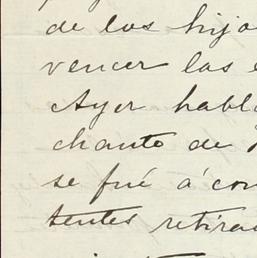 de los hijo
vencer las
Ayer habl
chanto de
se fué á con
tentes retira